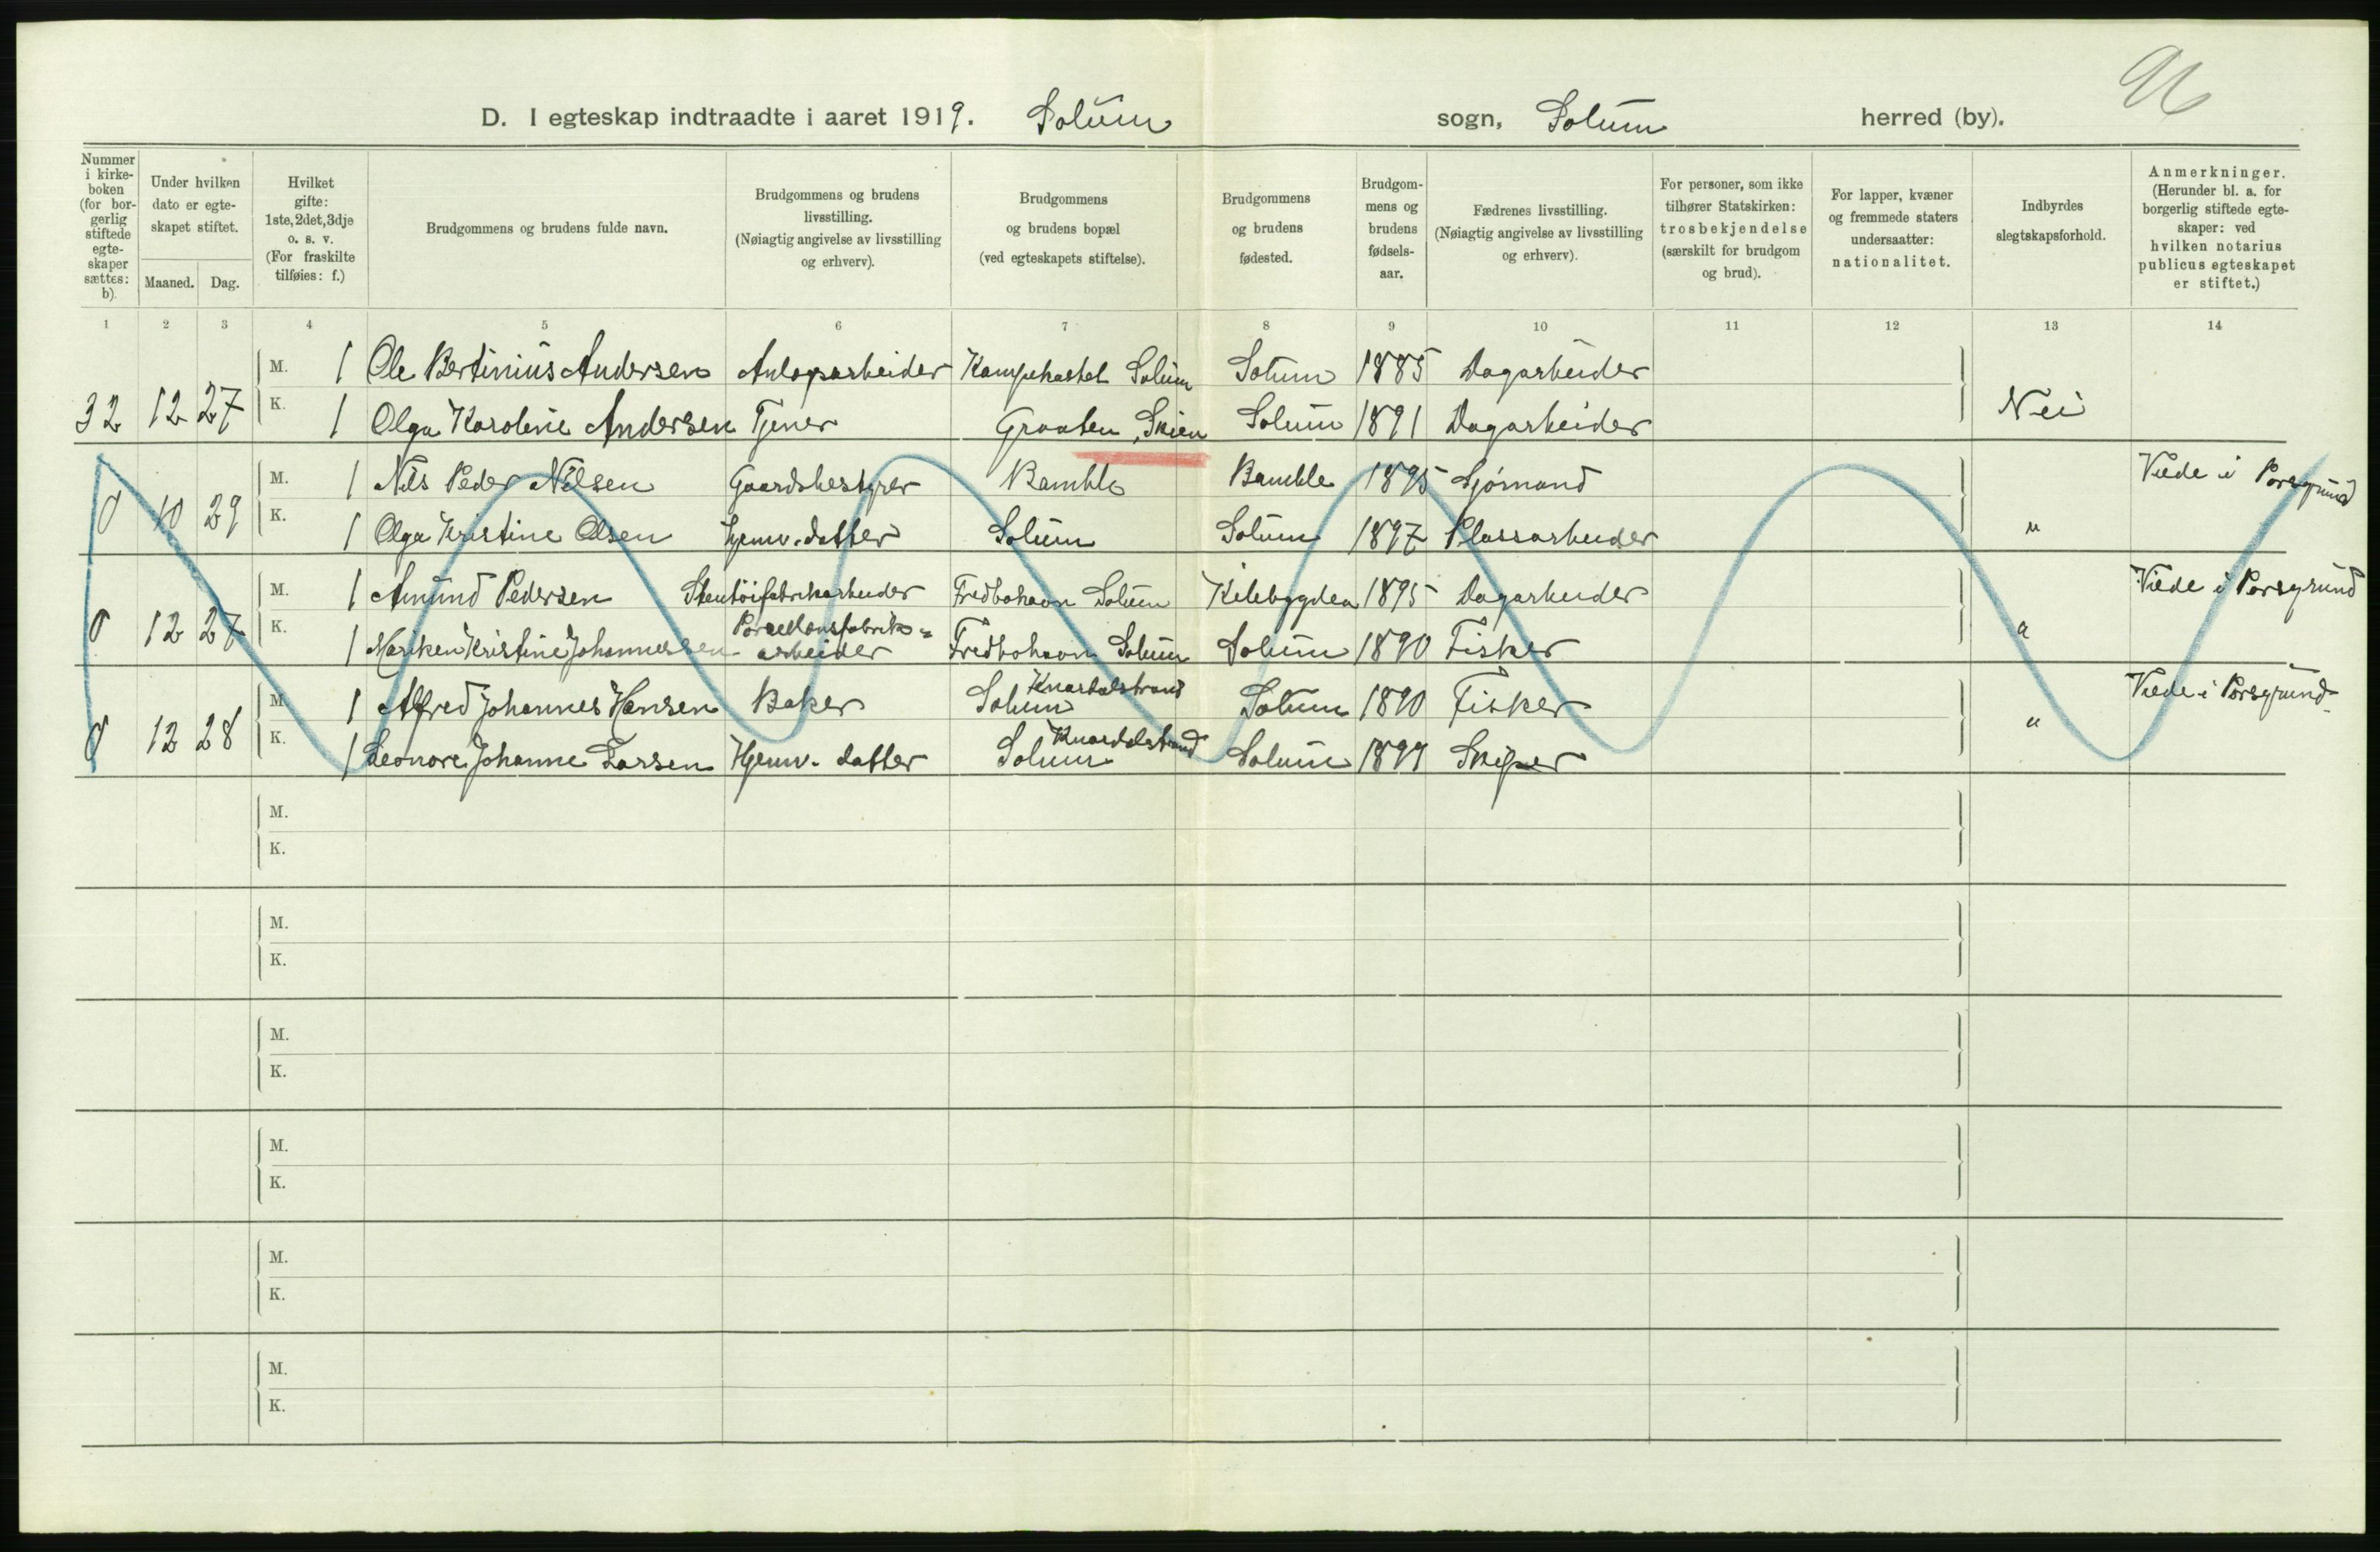 96
D. I egteskap indtraadte i aaret 1919. Solum sogn, Solum herred (by).
Nummer i kirkeboken (for borgerlig stiftede egteskaper sættes: b).
Under hvilken dato er egteskapet stiftet.
Maaned. Dag.
Hvilket gifte: 1ste, 2det, 3dje o. s. v. (For fraskilte tilføies: f.)
Brudgommens og brudens fulde navn.
Brudgommens og brudens livsstilling. (Nøiagtig angivelse av livsstilling og erhverv).
Brudgommens og brudens bopæl (ved egteskapets stiftelse).
Brudgommens og brudens fødested.
Brudgommens og brudens fødselsaar.
Fædrenes livsstilling. (Nøiagtig angivelse av livsstilling og erhverv).
For personer, som ikke tilhører Statskirken: trosbekjendelse (særskilt for brudgom og brud).
For lapper, kvæner og fremmede staters undersaatter: nationalitet.
Indbyrdes slegtskapsforhold.
Anmerkninger. (Herunder bl. a. for borgerlig stiftede egteskaper: ved hvilken notarius publicus egteskapet er stiftet.)
1 2 3 4 5 6 7 8 9 10 11 12 13 14
M. 1 Ole Bertinius Andersen Anlegsarbeider Kampehastet Solum Solum 1885 Dagarbeider
32 12 27 K. 1 Olga Karoline Andersen Tjener Graaten, Skien Solum 1891 Dagarbeider Nei
M. 1 Nils Peder Nilsen Gaardsbestyrer Bamble Bamble 1895 Sjømand Viede i Porsgrund
0 10 29 K. 1 Olga Kristine Olsen Hjemv. datter Solum Solum 1897 Plassarbeider "
M. 1 Amund Pedersen Stentøifabrikarbeider Fredbohavn Solum Kilebygden 1895 Dagarbeider Viede i Porsgrund
0 12 27 K. 1 Mariken Kristine Johannessen Porcellænsfabrik=arbeider Fredbohavn Solum Solum 1890 Fisker "
M. 1 Alfred Johannes Hansen Baker Knardalstrand Solum Solum 1890 Fisker Viede i Porsgrund
0 12 28 K. 1 Leonore Johanne Larsen Hjemv. datter Knardalstrand Solum Solum 1899 Skiper "
M.
K.
M.
K.
M.
K.
M.
K.
M.
K.
M.
K.